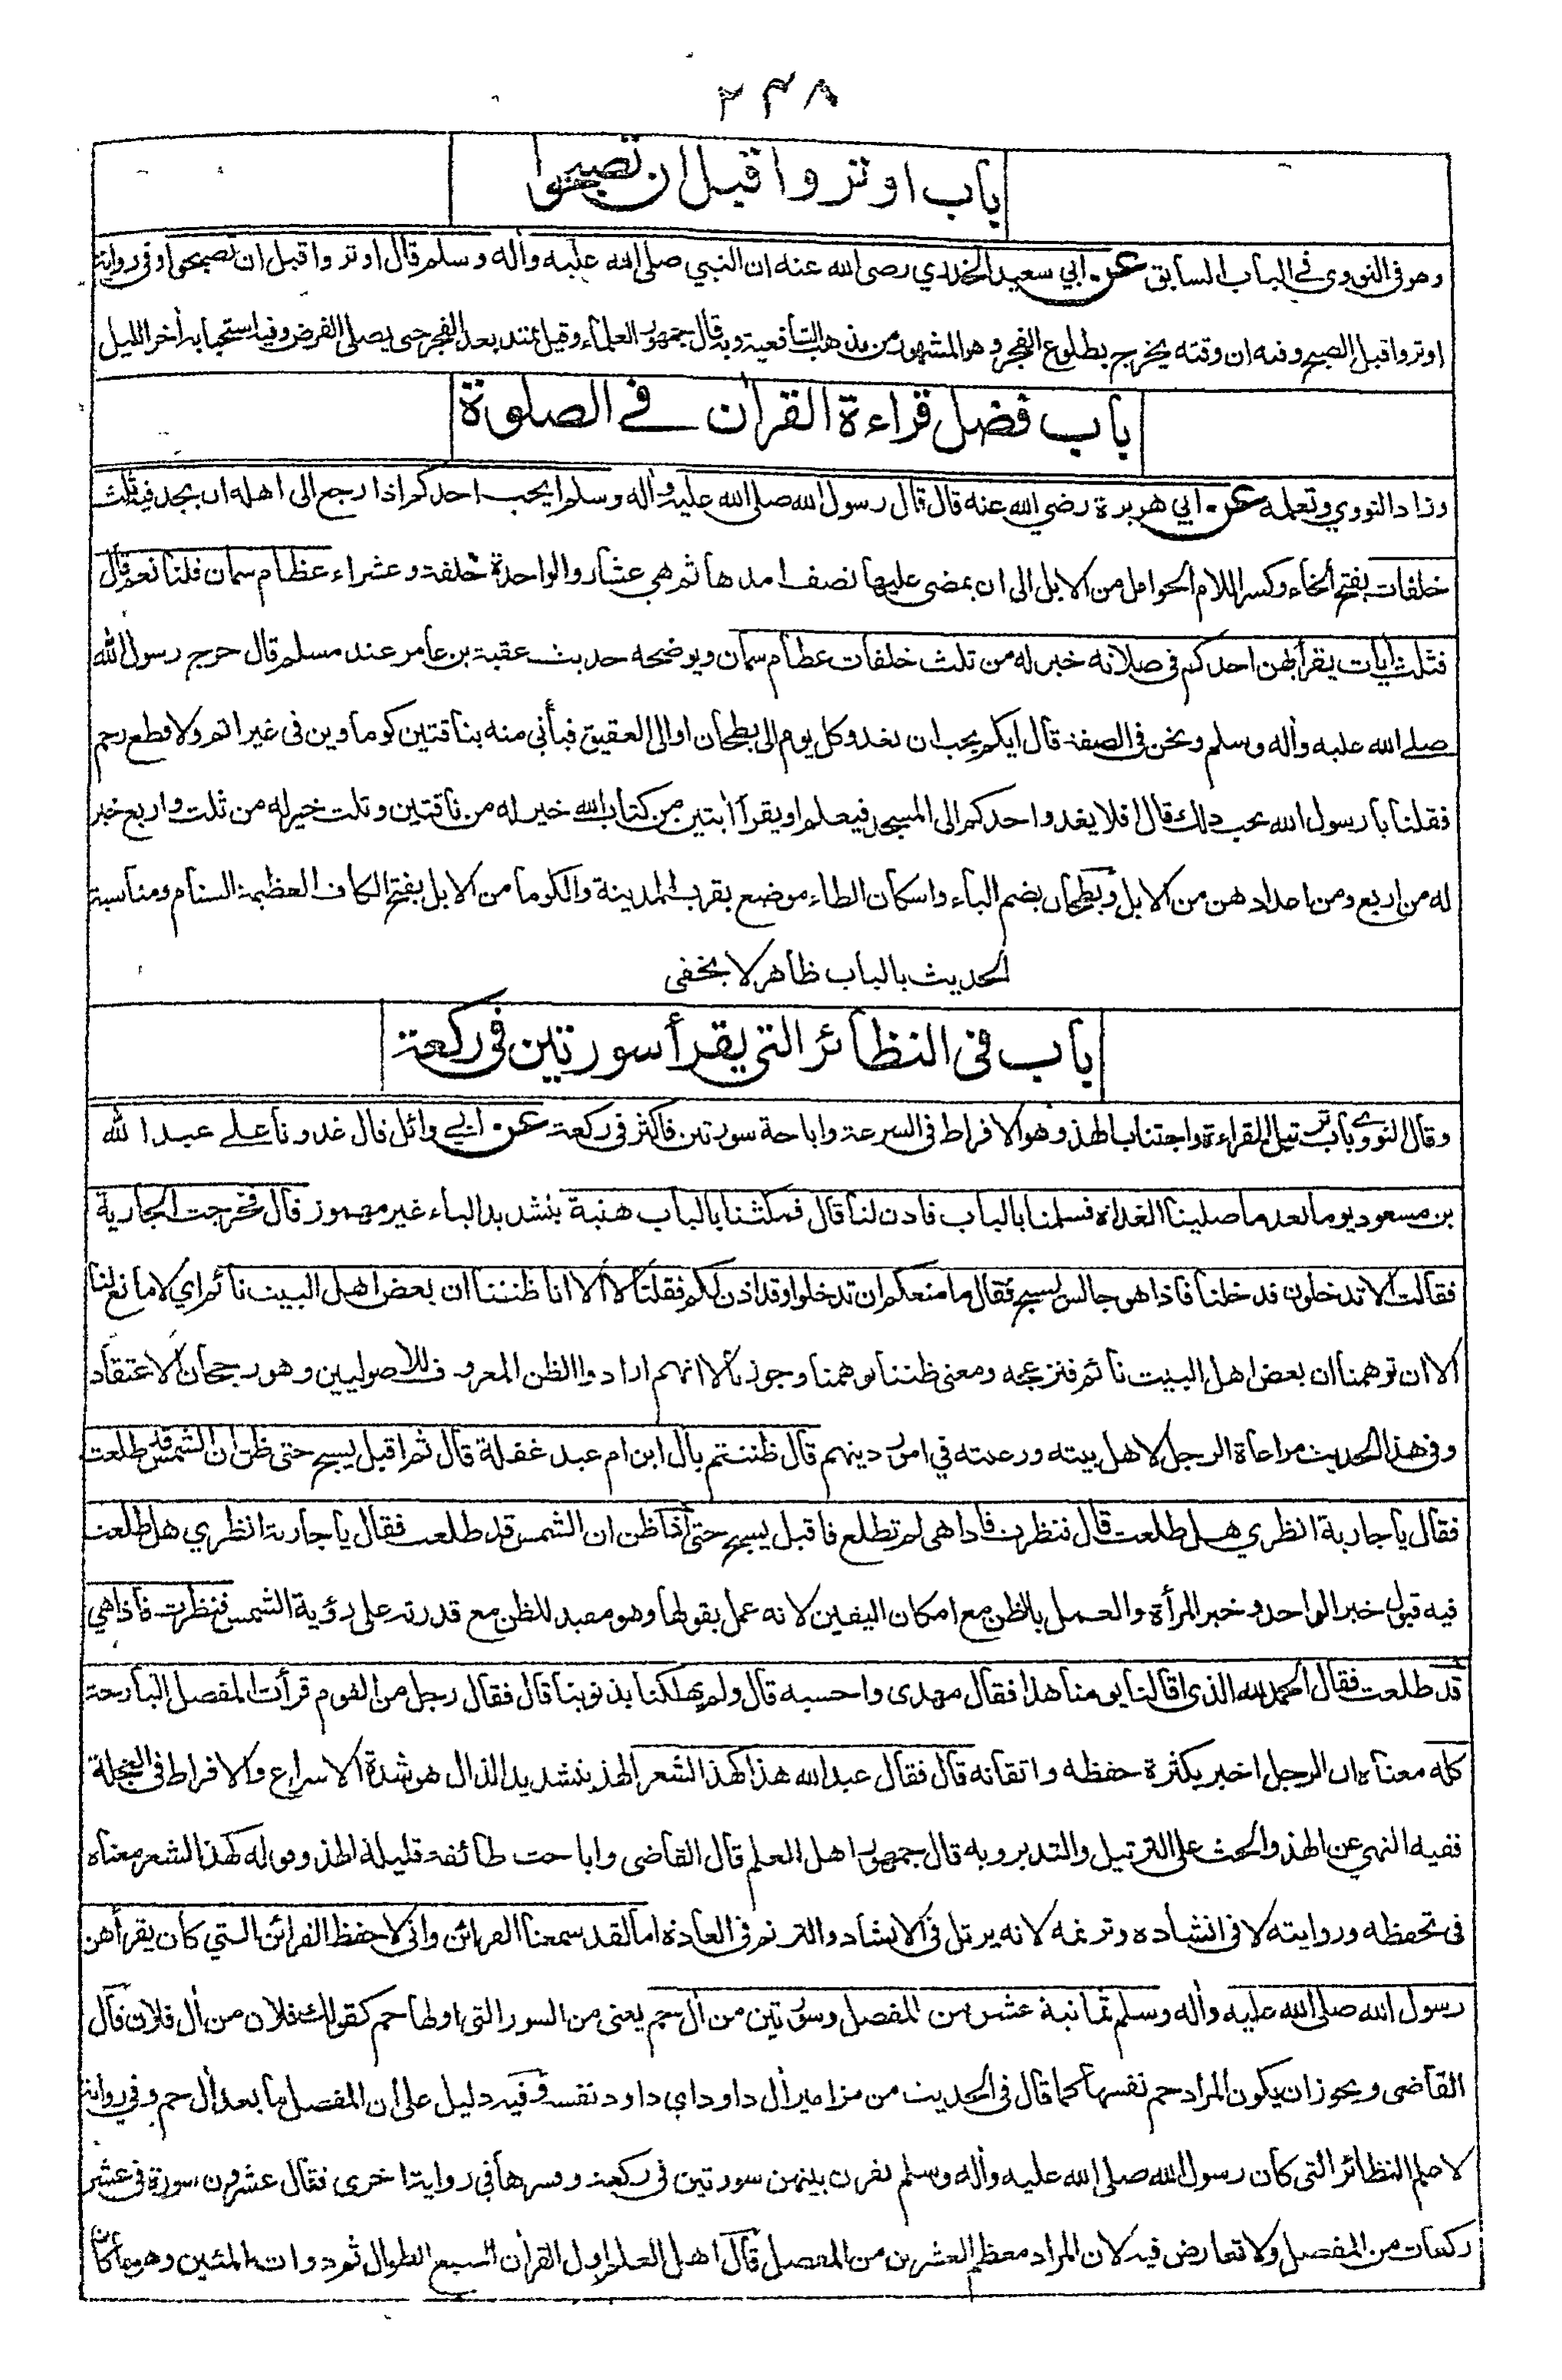 ٢٣٨
باب اوتروا قبل ان تصبحوا
وهو في النووي في الباب السابق عن ابي سعيد الخدري رضى الله عنه ان النبي صلى الله عليه وأله وسلم قال اوتروا قبل ان تصبحوا وفى رواية
اوتروا قبل الصبح وفيه ان وقته يخرج بطلوع الفجر وهو المشهور من مذهب الشافعية وبه قال جمهور العلماء وقيل يمتد بعد الفجر حتى يصلى الفرض وفيه استحبابه أخر الليل
باب فضل قراءة القرأن في الصلوة
وزاد النووي وتعلمه عن ابي هريرة رضي الله عنه قال قال رسول الله صلى الله عليه وأله وسلم ايحب احدكم اذا رجع الى اهله ان يجد فيه ثلث
خلفات بفتح الخاء وكسر اللام الحوامل من الابل الى ان يمضى عليها نصف امدها ثم هي عشار والواحدة خلفة وعشراء عظام سمان قلنا نعم قال
فثلث أيات يقرأ بهن احدكم فى صلاته خير له من ثلث خلفات عظام سمان ويوضحه حديث عقبة بن عامر عند مسلم قال خرج رسول الله
صلے الله عليه وأله وسلم ونحن فى الصفة قال ايكم يحب ان يغدو كل يوم الى بطحان او الى العقيق فيأتي منه بناقتين كوماوين فى غير اثم ولا قطع رحم
فقلنا يا رسول الله نحب ذلك قال افلا يغدو احدكم الى المسجد فيعلم او يقرأ أيتين من كتاب الله خير له من ناقتين وثلث خير له من ثلث واربع خير
له من اربع ومن اعدادهن من الابل وبطحان بضم الباء واسكان الطاء موضع بقرب المدينة والكوما من الابل بفتح الكاف العظيمة السنام ومناسبة
الحديث بالباب ظاهر لا يخفى
باب فى النظائر التي يقرأ سورتين فى ركعة
وقال النووي باب ترتيل القراءة واجتناب الهذ وهو الافراط فى السرعة واباحة سورتين فاكثر فى ركعة عن ابي وائل قال غدونا علے عبد الله
بن مسعود يوما بعد ما صلينا الغداة فسلمنا بالباب فاذن لنا قال فمكثنا بالباب هنية بتشديد الياء غير مهموز قال فخرجت الجارية
فقالت الا تدخلون فدخلنا فاذا هو جالس يسبح فقال ما منعكم ان تدخلوا وقد اذن لكم فقلنا لا الا انا ظننا ان بعض اهل البيت نائم اي لا مانع لنا
الا ان توهمنا ان بعض اهل البيت نائم فنزعجه ومعنى ظننا توهمنا وجوزنا لا انهم ارادوا الظن المعروف للاصوليين وهو رجحان الاعتقاد
وفى هذا الحديث مراعاة الرجل لاهل بيته ورعيته في امور دينهم قال ظننتم بأل ابن ام عبد غفلة قال ثم اقبل يسبح حتى ظن ان الشمس قد طلعت
فقال يا جارية انظري هل طلعت قال فنظرت فاذا هى لم تطلع فاقبل يسبح حتى اذا ظن ان الشمس قد طلعت فقال يا جارية انظري هل طلعت
فيه قبول خبر الواحد وخبر المرأة والعمل بالظن مع امكان اليقين لانه عمل بقولها وهو مفيد للظن مع قدرته على رؤية الشمس فنظرت فاذا هي
قد طلعت فقال الحمد لله الذى اقالنا يومنا هذا فقال مهدى واحسبه قال ولم يهلكنا بذنوبنا قال فقال رجل من القوم قرأت المفصل البارحة
كله معناه ان الرجل اخبر بكثرة حفظه واتقانه قال فقال عبد الله هذا كهذ الشعر الهذ بتشديد الذال هو شدة الاسراع والافراط فى العجلة
ففيه النهي عن الهذ والحث على الترتيل والتدبر وبه قال جمهور اهل العلم قال القاضى واباحت طائفة قليلة الهذ وقوله كهذ الشعر معناه
فى تحفظه وروايته لا فى انشاده وترنمه لانه يرتل فى الانشاد والترنم فى العادة اما لقد سمعنا القرائن وانى لاحفظ القرائن التي كان يقرأهن
رسول الله صلى الله عليه وأله وسلم ثمانية عشر من المفصل وسورتين من أل حم يعنى من السور التى اولها حم كقولك فلان من أل فلان قال
القاضى ويجوز ان يكون المراد حم نفسها كما قال فى الحديث من مزامير أل داود اي داود نفسه وفيه دليل على ان المفصل ما بعد أل حم وفي رواية
لاعلم النظائر التى كان رسول الله صلى الله عليه وأله وسلم يقرن بينهن سورتين فى ركعة وفسرها في رواية اخرى فقال عشرون سورة فى عشر
ركعات من المفصل ولا تعارض فيه لان المراد معظم العشرين من المفصل قال اهل العلم اول القرأن السبع الطوال ثم ذوات المئين وهو ما كان